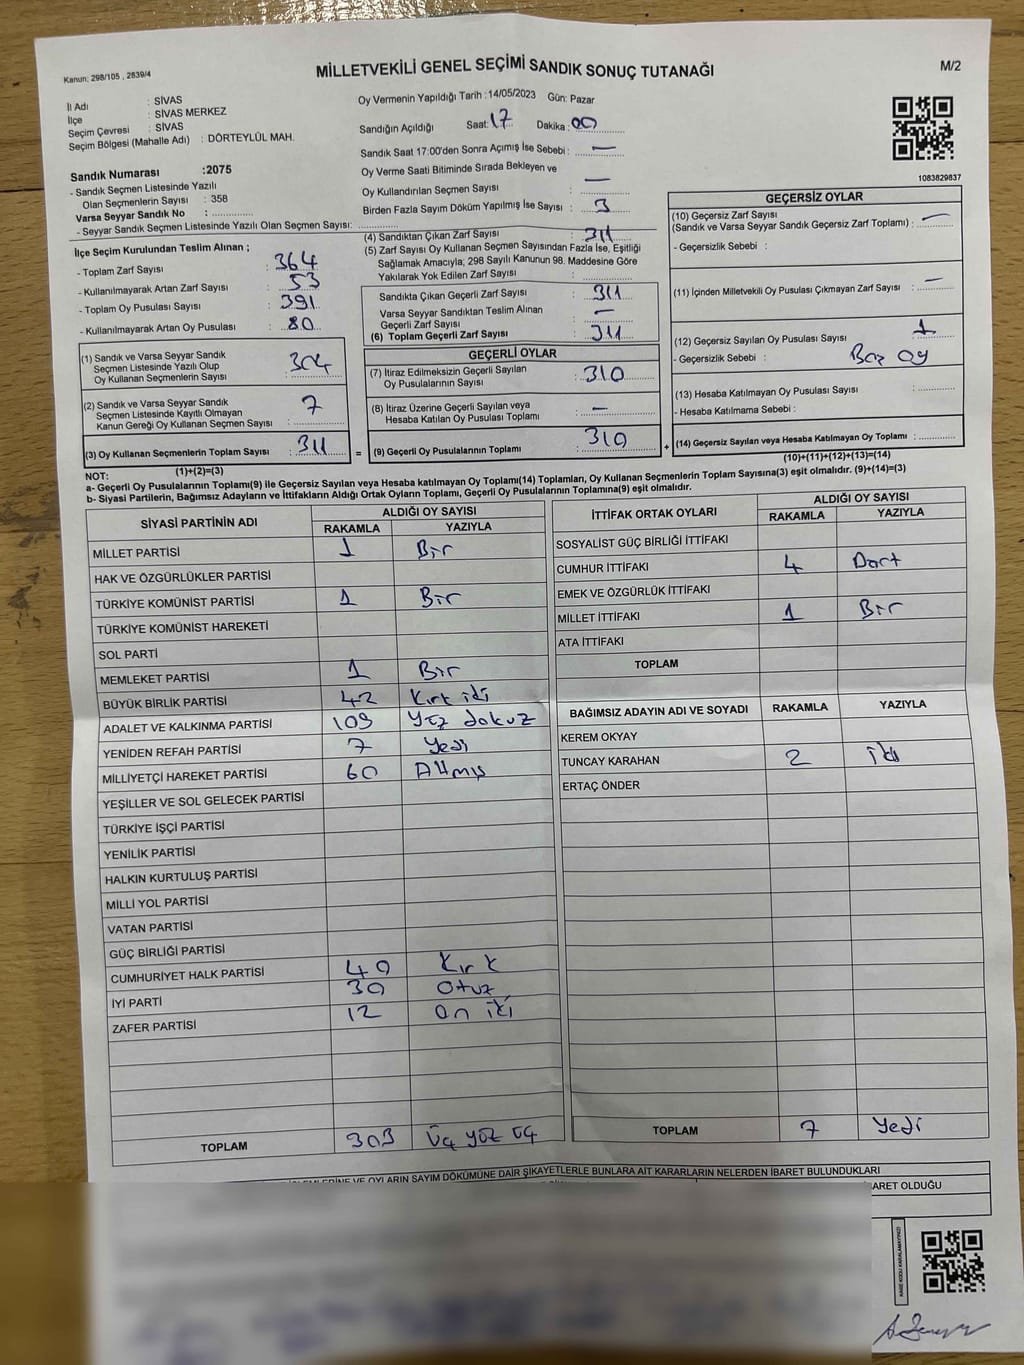 Kanun: 298/105 , 2839/4
MİLLETVEKİLİ GENEL SEÇİMİ SANDIK SONUÇ TUTANAĞI
M/2
İl Adı : SİVAS
İlçe : SİVAS MERKEZ
Seçim Çevresi : SİVAS
Seçim Bölgesi (Mahalle Adı) : DÖRTEYLÜL MAH.
Sandık Numarası :2075
- Sandık Seçmen Listesinde Yazılı
Olan Seçmenlerin Sayısı : 358
Varsa Seyyar Sandık No :
- Seyyar Sandık Seçmen Listesinde Yazılı Olan Seçmen Sayısı:
Oy Vermenin Yapıldığı Tarih :14/05/2023 Gün: Pazar
Sandığın Açıldığı Saat: 17 Dakika : 00
Sandık Saat 17:00'den Sonra Açımış İse Sebebi : —
Oy Verme Saati Bitiminde Sırada Bekleyen ve
Oy Kullandırılan Seçmen Sayısı : —
Birden Fazla Sayım Döküm Yapılmış İse Sayısı : 3
1083829837
İlçe Seçim Kurulundan Teslim Alınan ;
- Toplam Zarf Sayısı : 364
- Kullanılmayarak Artan Zarf Sayısı : 53
- Toplam Oy Pusulası Sayısı : 391
- Kullanılmayarak Artan Oy Pusulası : 80
(1) Sandık ve Varsa Seyyar Sandık
Seçmen Listesinde Yazılı Olup
Oy Kullanan Seçmenlerin Sayısı : 304
(2) Sandık ve Varsa Seyyar Sandık
Seçmen Listesinde Kayıtlı Olmayan
Kanun Gereği Oy Kullanan Seçmen Sayısı : 7
(3) Oy Kullanan Seçmenlerin Toplam Sayısı : 311
(1)+(2)=(3)
(4) Sandıktan Çıkan Zarf Sayısı : 311
(5) Zarf Sayısı Oy Kullanan Seçmen Sayısından Fazla İse, Eşitliği
Sağlamak Amacıyla; 298 Sayılı Kanunun 98. Maddesine Göre
Yakılarak Yok Edilen Zarf Sayısı :
Sandıkta Çıkan Geçerli Zarf Sayısı : 311
Varsa Seyyar Sandıktan Teslim Alınan
Geçerli Zarf Sayısı : —
(6) Toplam Geçerli Zarf Sayısı : 311
GEÇERLİ OYLAR
(7) İtiraz Edilmeksizin Geçerli Sayılan
Oy Pusulalarının Sayısı : 310
(8) İtiraz Üzerine Geçerli Sayılan veya
Hesaba Katılan Oy Pusulası Toplamı : —
= (9) Geçerli Oy Pusulalarının Toplamı : 310
GEÇERSİZ OYLAR
(10) Geçersiz Zarf Sayısı
(Sandık ve Varsa Seyyar Sandık Geçersiz Zarf Toplamı) : —
- Geçersizlik Sebebi :
(11) İçinden Milletvekili Oy Pusulası Çıkmayan Zarf Sayısı : —
(12) Geçersiz Sayılan Oy Pusulası Sayısı : 1
- Geçersizlik Sebebi : Boz oy
(13) Hesaba Katılmayan Oy Pusulası Sayısı :
- Hesaba Katılmama Sebebi :
+ (14) Geçersiz Sayılan veya Hesaba Katılmayan Oy Toplamı :
(10)+(11)+(12)+(13)=(14)
NOT:
a- Geçerli Oy Pusulalarının Toplamı(9) ile Geçersiz Sayılan veya Hesaba katılmayan Oy Toplamı(14) Toplamları, Oy Kullanan Seçmenlerin Toplam Sayısına(3) eşit olmalıdır. (9)+(14)=(3)
b- Siyasi Partilerin, Bağımsız Adayların ve İttifakların Aldığı Ortak Oyların Toplamı, Geçerli Oy Pusulalarının Toplamına(9) eşit olmalıdır.
SİYASİ PARTİNİN ADI ALDIĞI OY SAYISI
RAKAMLA YAZIYLA
MİLLET PARTİSİ 1 Bir
HAK VE ÖZGÜRLÜKLER PARTİSİ
TÜRKİYE KOMÜNİST PARTİSİ 1 Bir
TÜRKİYE KOMÜNİST HAREKETİ
SOL PARTİ
MEMLEKET PARTİSİ 1 Bir
BÜYÜK BİRLİK PARTİSİ 42 Kırk iki
ADALET VE KALKINMA PARTİSİ 109 Yüz dokuz
YENİDEN REFAH PARTİSİ 7 Yedi
MİLLİYETÇİ HAREKET PARTİSİ 60 Altmış
YEŞİLLER VE SOL GELECEK PARTİSİ
TÜRKİYE İŞÇİ PARTİSİ
YENİLİK PARTİSİ
HALKIN KURTULUŞ PARTİSİ
MİLLİ YOL PARTİSİ
VATAN PARTİSİ
GÜÇ BİRLİĞİ PARTİSİ
CUMHURİYET HALK PARTİSİ 40 Kırk
İYİ PARTİ 30 Otuz
ZAFER PARTİSİ 12 On iki
TOPLAM 303 Üç yüz üç
İTTİFAK ORTAK OYLARI ALDIĞI OY SAYISI
RAKAMLA YAZIYLA
SOSYALİST GÜÇ BİRLİĞİ İTTİFAKI
CUMHUR İTTİFAKI 4 Dört
EMEK VE ÖZGÜRLÜK İTTİFAKI
MİLLET İTTİFAKI 1 Bir
ATA İTTİFAKI
TOPLAM
BAĞIMSIZ ADAYIN ADI VE SOYADI RAKAMLA YAZIYLA
KEREM OKYAY
TUNCAY KARAHAN 2 iki
ERTAÇ ÖNDER
TOPLAM 7 Yedi
OYLARIN SAYIM DÖKÜMÜNE DAİR ŞİKAYETLERLE BUNLARA AİT KARARLARIN NELERDEN İBARET BULUNDUKLARI
OLDUĞU